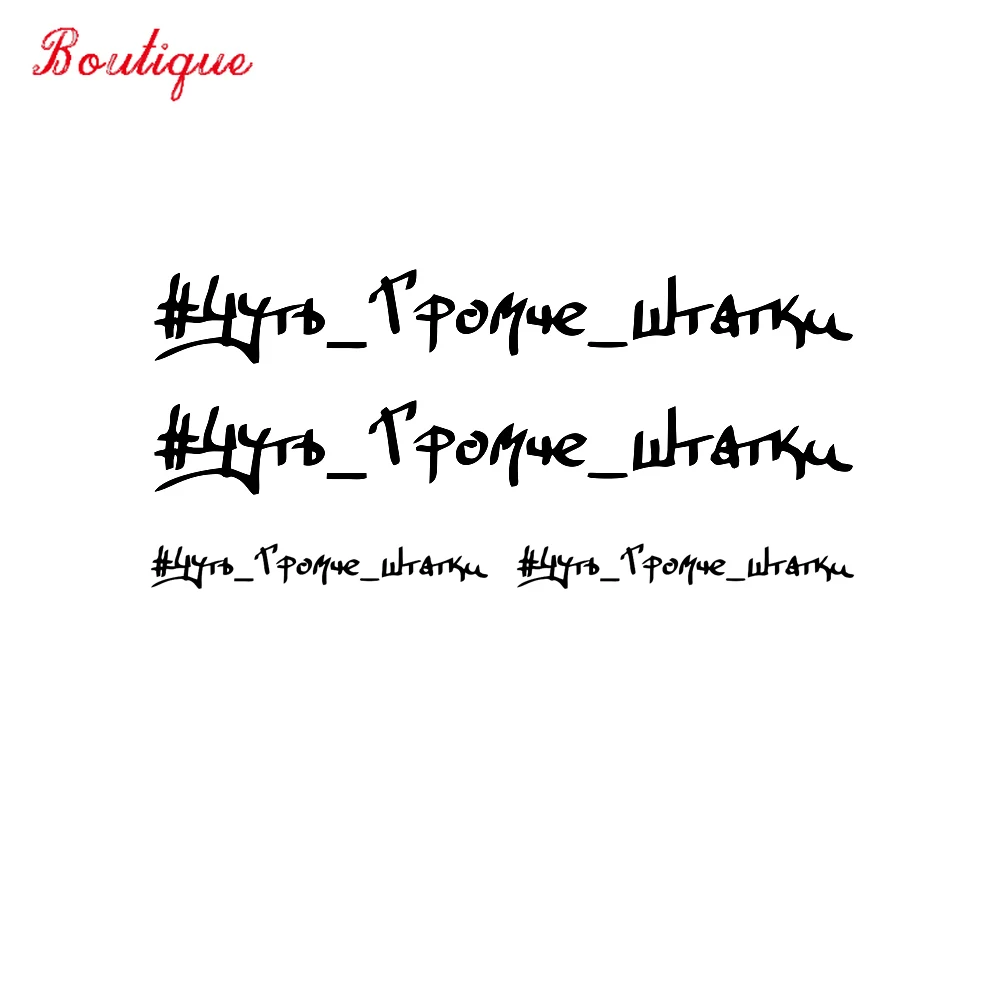 Boutique
#Чуть_Громче_штатки
#Чуть_Громче_штатки
#Чуть_Громче_штатки #Чуть_Громче_штатки